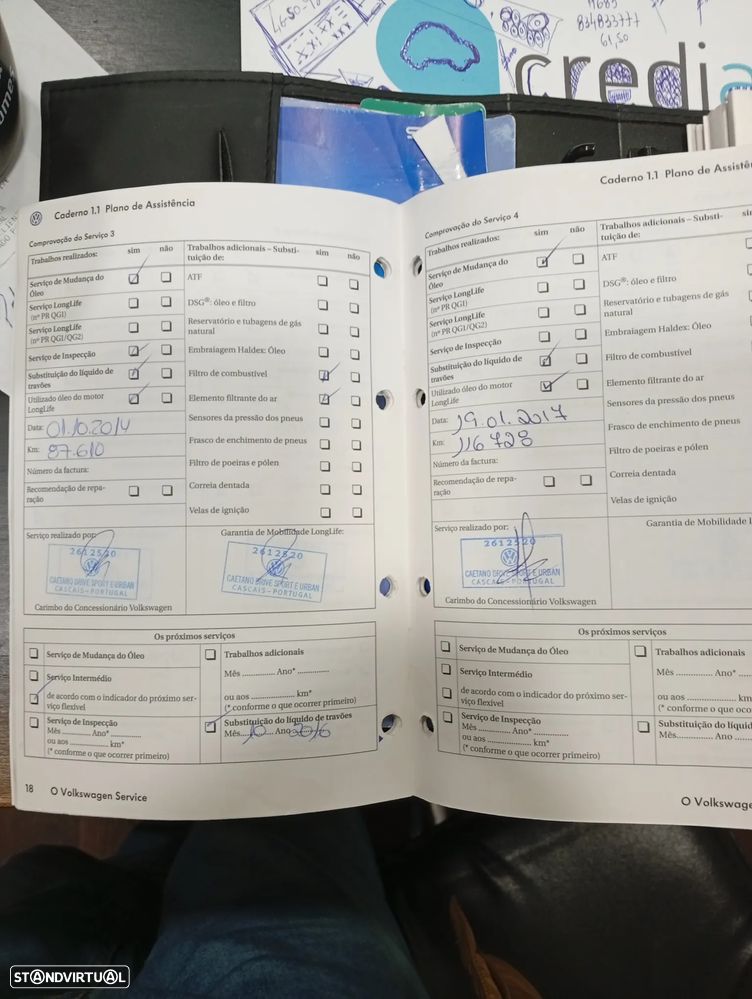 4683
834833777
61,50
credia
Caderno 1.1 Plano de Assistência
Comprovação do Serviço 3
Trabalhos realizados: sim não
Trabalhos adicionais – Substituição de: sim não
Serviço de Mudança do Óleo
Serviço LongLife (nº PR QG1)
Serviço LongLife (nº PR QG1/QG2)
Serviço de Inspecção
Substituição do líquido de travões
Utilizado óleo do motor LongLife
Data: 01.10.2014
Km: 87.610
Número da factura:
Recomendação de reparação
ATF
DSG®: óleo e filtro
Reservatório e tubagens de gás natural
Embraiagem Haldex: Óleo
Filtro de combustível
Elemento filtrante do ar
Sensores da pressão dos pneus
Frasco de enchimento de pneus
Filtro de poeiras e pólen
Correia dentada
Velas de ignição
Serviço realizado por:
Garantia de Mobilidade LongLife:
2612520
CAETANO DRIVE SPORT E URBAN
CASCAIS - PORTUGAL
2612520
CAETANO DRIVE SPORT E URBAN
CASCAIS - PORTUGAL
Carimbo do Concessionário Volkswagen
Os próximos serviços
Serviço de Mudança do Óleo
Serviço Intermédio
de acordo com o indicador do próximo serviço flexível
Serviço de Inspecção
Mês ............. Ano* ..............
ou aos ................... km*
(* conforme o que ocorrer primeiro)
Trabalhos adicionais
Mês .............. Ano* ..............
ou aos ...................... km*
(* conforme o que ocorrer primeiro)
Substituição do líquido de travões
Mês 10 Ano 2016
18 O Volkswagen Service
Caderno 1.1 Plano de Assistên
Comprovação do Serviço 4
Trabalhos realizados: sim não
Trabalhos adicionais – Substituição de: si
Serviço de Mudança do Óleo
Serviço LongLife (nº PR QG1)
Serviço LongLife (nº PR QG1/QG2)
Serviço de Inspecção
Substituição do líquido de travões
Utilizado óleo do motor LongLife
Data: 19.01.2017
Km: 116 728
Número da factura:
Recomendação de reparação
ATF
DSG®: óleo e filtro
Reservatório e tubagens de gás natural
Embraiagem Haldex: Óleo
Filtro de combustível
Elemento filtrante do ar
Sensores da pressão dos pneus
Frasco de enchimento de pneus
Filtro de poeiras e pólen
Correia dentada
Velas de ignição
Serviço realizado por:
Garantia de Mobilidade L
2612520
CAETANO DRIVE SPORT E URBAN
CASCAIS - PORTUGAL
Carimbo do Concessionário Volkswagen
Os próximos serviços
Serviço de Mudança do Óleo
Serviço Intermédio
de acordo com o indicador do próximo serviço flexível
Serviço de Inspecção
Mês ............. Ano* ..............
ou aos ................... km*
(* conforme o que ocorrer primeiro)
Trabalhos adicionais
Mês .............. Ano* ..........
ou aos ...................... km*
(* conforme o que oco
Substituição do líquid
Mês............. Ano ........
O Volkswage
STANDVIRTUAL